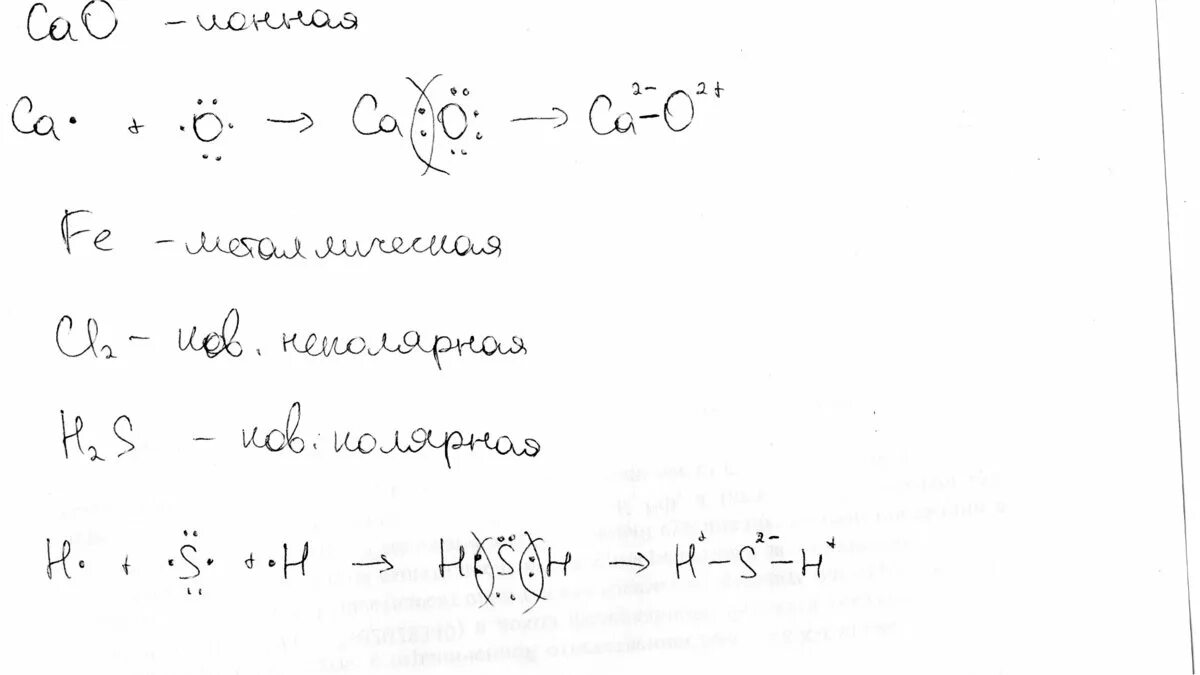 CaO – ионная
Ca· + ·Ö· → Ca:Ö: → Ca²⁻–O²⁺
Fe – металлическая
Cl₂ – ков. неполярная
H₂S – ков. полярная
H· + ·S̈· + ·H → H:S̈:H → H⁺–S²⁻–H⁺